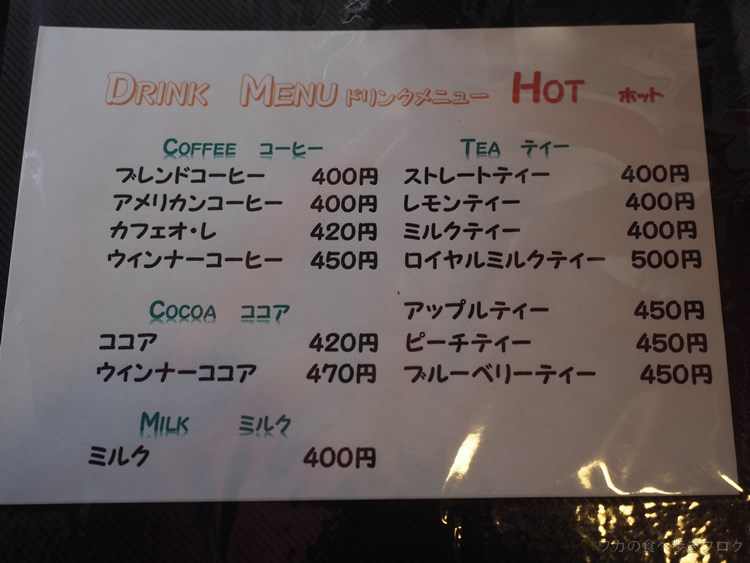 DRINK MENU ドリンクメニュー HOT ホット
COFFEE コーヒー
ブレンドコーヒー 400円
アメリカンコーヒー 400円
カフェオ・レ 420円
ウインナーコーヒー 450円
COCOA ココア
ココア 420円
ウインナーココア 470円
MILK ミルク
ミルク 400円
TEA ティー
ストレートティー 400円
レモンティー 400円
ミルクティー 400円
ロイヤルミルクティー 500円
アップルティー 450円
ピーチティー 450円
ブルーベリーティー 450円
ワカの食べ歩きブログ